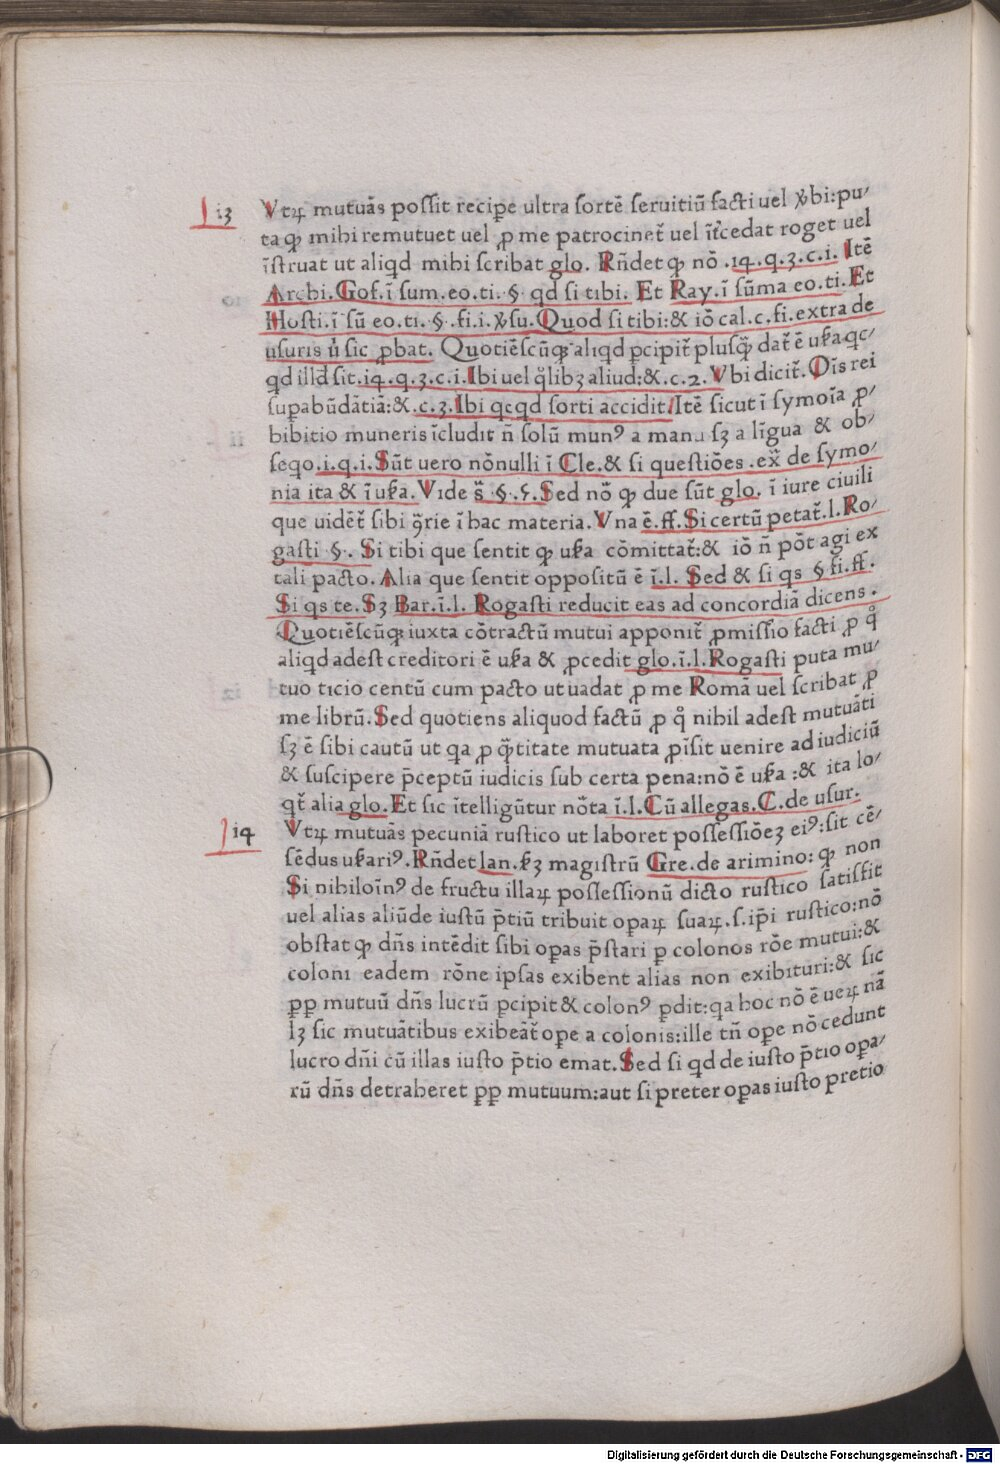 13 Vtꝝ mutuãs possit recipe ultra sortẽ seruitiũ facti uel ṽbi:pu/
ta ꝙ mihi remutuet uel ꝓ me patrocinet̃ uel ĩt̃cedat roget uel
ĩstruat ut aliqd mihi scribat glo. Rñdet ꝙ nõ .14.q.3.c.i. Itẽ
Archi.Gof.ĩ sum.eo.ti.§. qd si tibi. Et Ray.ĩ sũma eo.ti.Et
Hosti.ĩ sũ eo.ti.§.fi.i.ṽsu.Quod si tibi:& iõ cal.c.fi.extra de
usuris ñ sic ꝓbat. Quotiẽscũqꝫ aliqd ꝑcipit̃ plusꝙ̃ dat̃ ẽ usa.qc/
qd illd sit.14.q.3.c.i.Ibi uel qͦlibꝫ aliud:&.c.2.Vbi dicit̃. Oĩs rei
supabũdãtiã:&.c.3.Ibi qcqd sorti accidit.Itẽ sicut ĩ symoĩa ꝓ/
hibitio muneris ĩcludit ñ solũ munꝰ a manu sꝫ a lĩgua & ob/
seqo.i.q.i.Sũt uero nõnulli ĩ Cle.& si questiões .ex̃ de symo/
nia ita & ĩ usa. Vide s̃.§.5.Sed nõ ꝙ due sũt glo. ĩ iure ciuili
que uidẽt̃ sibi ꝯ̃rie ĩ hac materia. Vna ẽ.ff.Si certũ petat̃.l.Ro/
gasti §. Si tibi que sentit ꝙ usa cõmittat̃:& iõ ñ põt agi ex
tali pacto. Alia que sentit oppositũ ẽ ĩ.l. Sed & si qs §fi.ff.
Si qs te.Sꝫ Bar.ĩ.l. Rogasti reducit eas ad concordiã dicens.
Quotiẽscũqꝫ iuxta cõtractũ mutui apponit̃ ꝓmissio facti ꝓ qͦ
aliqd adest creditori ẽ usa & ꝓcedit glo.ĩ.l.Rogasti puta mu/
tuo ticio centũ cum pacto ut uadat ꝓ me Romã uel scribat ꝓ
me librũ.Sed quotiens aliquod factũ ꝓ qͦ nihil adest mutuãti
sꝫ ẽ sibi cautũ ut qa ꝓ ꝙ̃titate mutuata ꝓĩsit uenire ad iudiciũ
& suscipere p̃ceptũ iudicis sub certa pena:nõ ẽ usa :& ita lo/
qt̃ alia glo.Et sic ĩtelligũtur nõta ĩ.l.Cũ allegas.C.de usur.
14 Vtꝝ mutuãs pecuniã rustico ut laboret possessiõeꝫ eiꝰ:sit cẽ/
sẽdus usariꝰ.Rñdet lau.ẜꝫ magistrũ Gre.de arimino: ꝙ non
Si nihiloĩnꝰ de fructu illaꝝ possessionũ dicto rustico satisfit
uel alias aliũde iustũ p̃tiũ tribuit opaꝝ suaꝝ.s.ip̃i rustico:nõ
obstat ꝙ dñs intẽdit sibi opas p̃stari ꝑ colonos rõe mutui:&
coloni eadem rõne ipsas exibent alias non exibituri:& sic
ꝑꝑ mutuũ dñs lucrũ ꝑcipit & colonꝰ ꝑdit:qa hoc nõ ẽ ueꝝ nã
lꝫ sic mutuãtibus exibeãt̃ ope a colonis:ille tñ ope nõ cedunt
lucro dñi cũ illas iusto p̃tio emat.Sed si qd de iusto p̃tio opa/
rũ dñs detraheret ꝑꝑ mutuum:aut si preter opas iusto pretio
Digitalisierung gefördert durch die Deutsche Forschungsgemeinschaft - DFG